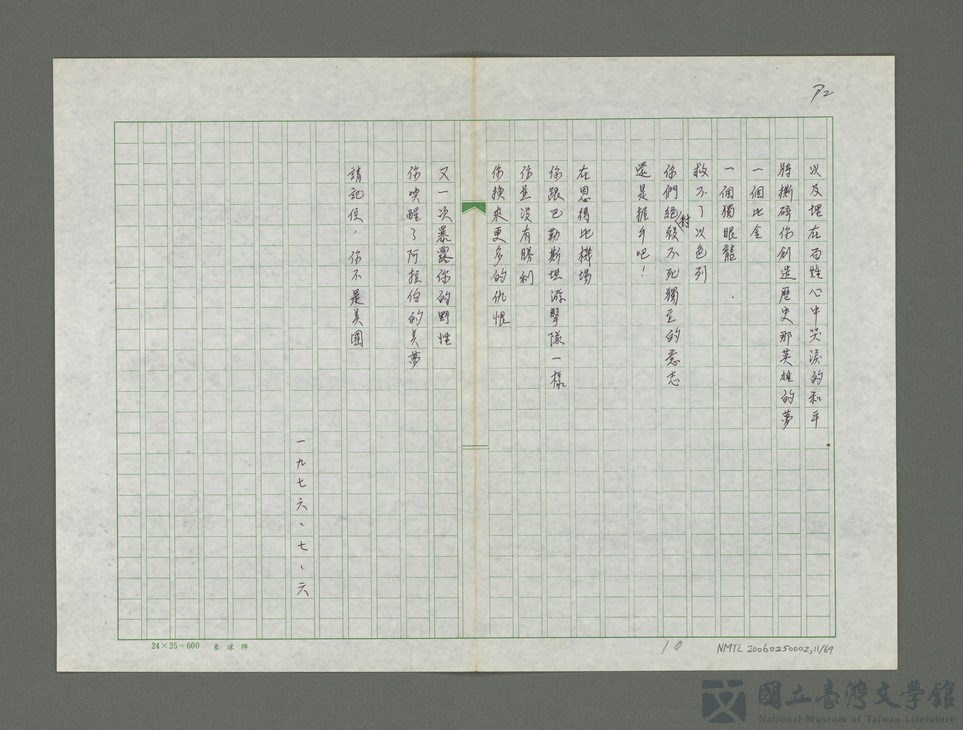 P2
以及埋在百姓心中哭淚的和平
將撕碎你創造歷史那英雄的夢
一個比金
一個獨眼龍
救不了以色列
你們絕對不死獨立的意志
還是握手吧！
在恩得比機場
你跟巴勒斯坦游擊隊一樣
你並沒有勝利
你換來更多的仇恨
又一次暴露你的野性
你喚醒了阿拉伯的美夢
請記住，你不是美國
一九七六、七、六
24×25=600
10
NMTL 20060250002,11/69
國立臺灣文學館
National Museum of Taiwan Literature